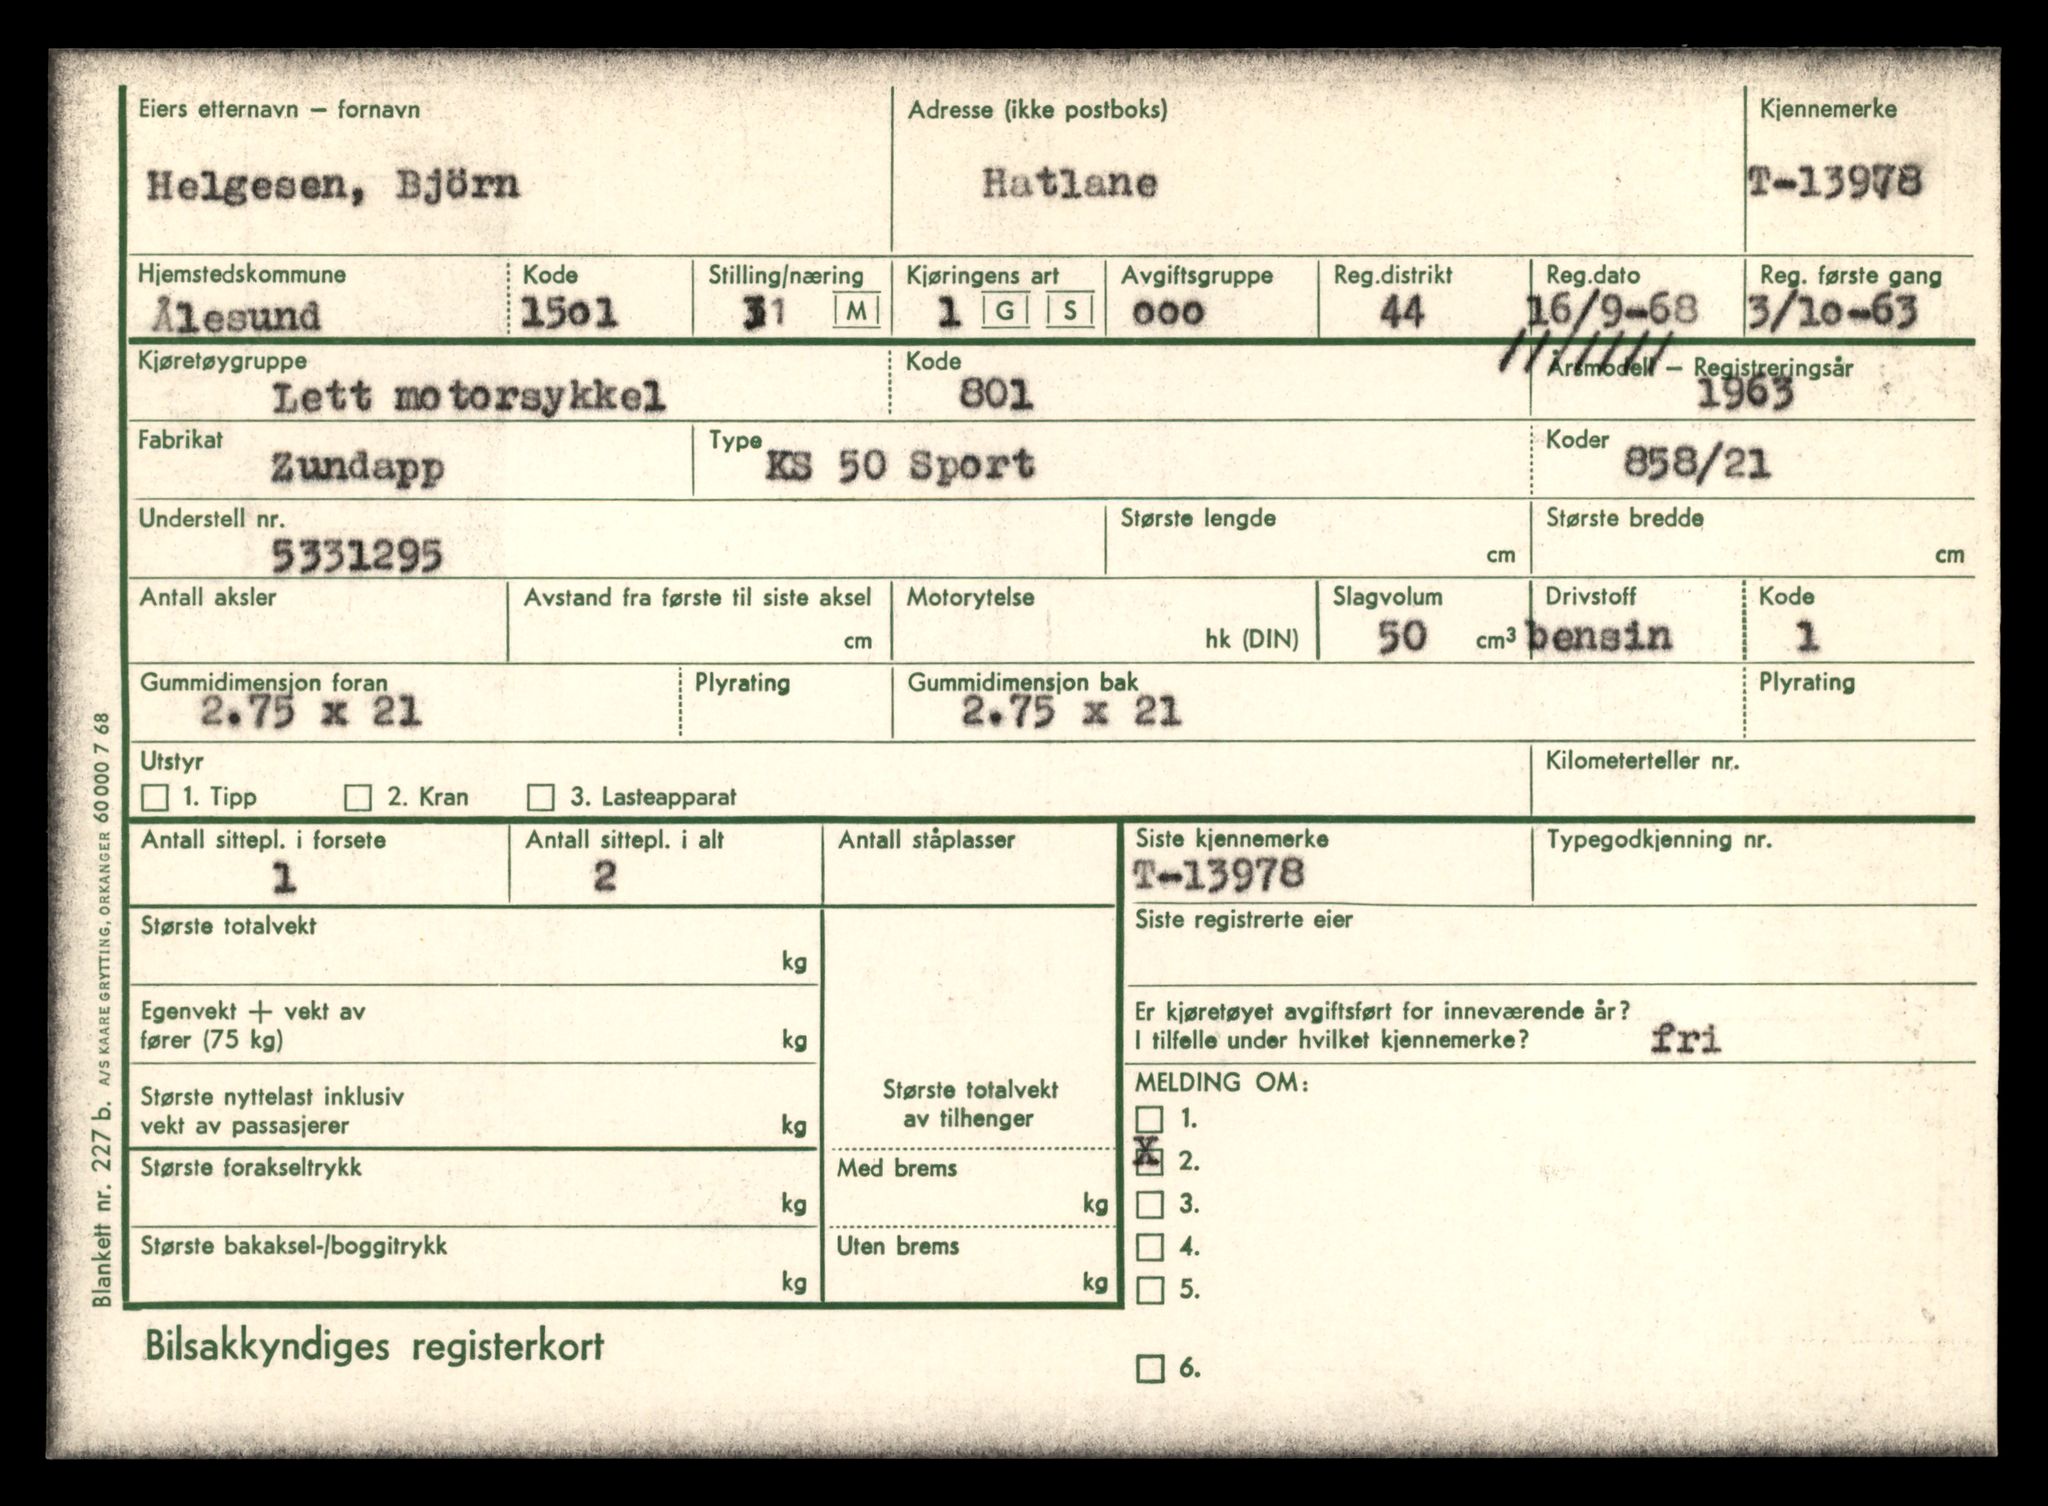 Eiers etternavn – fornavn
Adresse (ikke postboks)
Kjennemerke
Helgesen, Björn
Hatlane
T-13978
Hjemstedskommune
Kode
Stilling/næring
Kjøringens art
Avgiftsgruppe
Reg.distrikt
Reg.dato
Reg. første gang
Ålesund
15o1
M
1
G
S
ooo
44
16/9-68
3/1o-63
///////
Kjøretøygruppe
Kode
Årsmodell – Registreringsår
Lett motorsykkel
801
1963
Fabrikat
Type
Koder
Zundapp
KS 50 Sport
858/21
Understell nr.
Største lengde
Største bredde
5331295
cm
cm
Antall aksler
Avstand fra første til siste aksel
Motorytelse
Slagvolum
Drivstoff
Kode
cm
hk (DIN)
50 cm³
bensin
1
Gummidimensjon foran
Plyrating
Gummidimensjon bak
Plyrating
2.75 x 21
2.75 x 21
Utstyr
Kilometerteller nr.
1. Tipp
2. Kran
3. Lasteapparat
Antall sittepl. i forsete
Antall sittepl. i alt
Antall ståplasser
Siste kjennemerke
Typegodkjenning nr.
1
2
T-13978
Største totalvekt
kg
Siste registrerte eier
Egenvekt + vekt av
fører (75 kg)
kg
Er kjøretøyet avgiftsført for inneværende år?
I tilfelle under hvilket kjennemerke?
fri
Største nyttelast inklusiv
vekt av passasjerer
kg
Største totalvekt
av tilhenger
MELDING OM:
1.
X 2.
3.
4.
5.
6.
Største forakseltrykk
kg
Med brems
kg
Største bakaksel-/boggitrykk
kg
Uten brems
kg
Bilsakkyndiges registerkort
Blankett nr. 227 b. A/S KAARE GRYTTING, ORKANGER 60 000 7 68